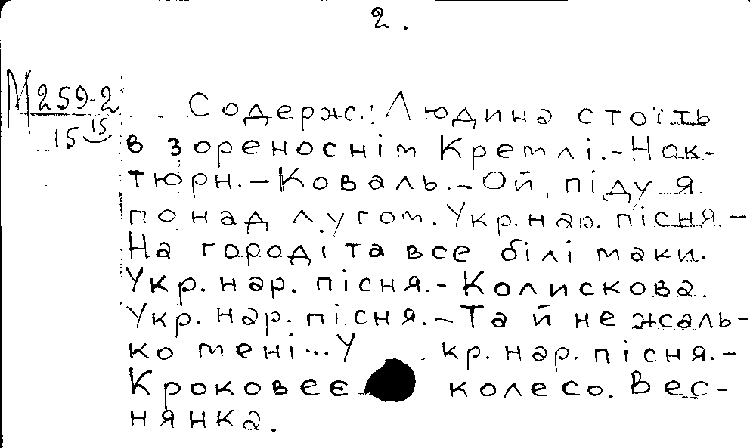 2.
М259-2
15 15
Содерж.: Людина стоїть
в зореноснім Кремлі.-Нок-
тюрн.-Коваль.-Ой, піду я
понад лугом. Укр.нар. пісня.-
На городі та все білі маки.
Укр. нар. пісня.- Колискова.
Укр. нар. пісня.-Та й не жаль-
ко мені... Укр. нар. пісня.-
Кроковеє колесо. Вес-
нянка.